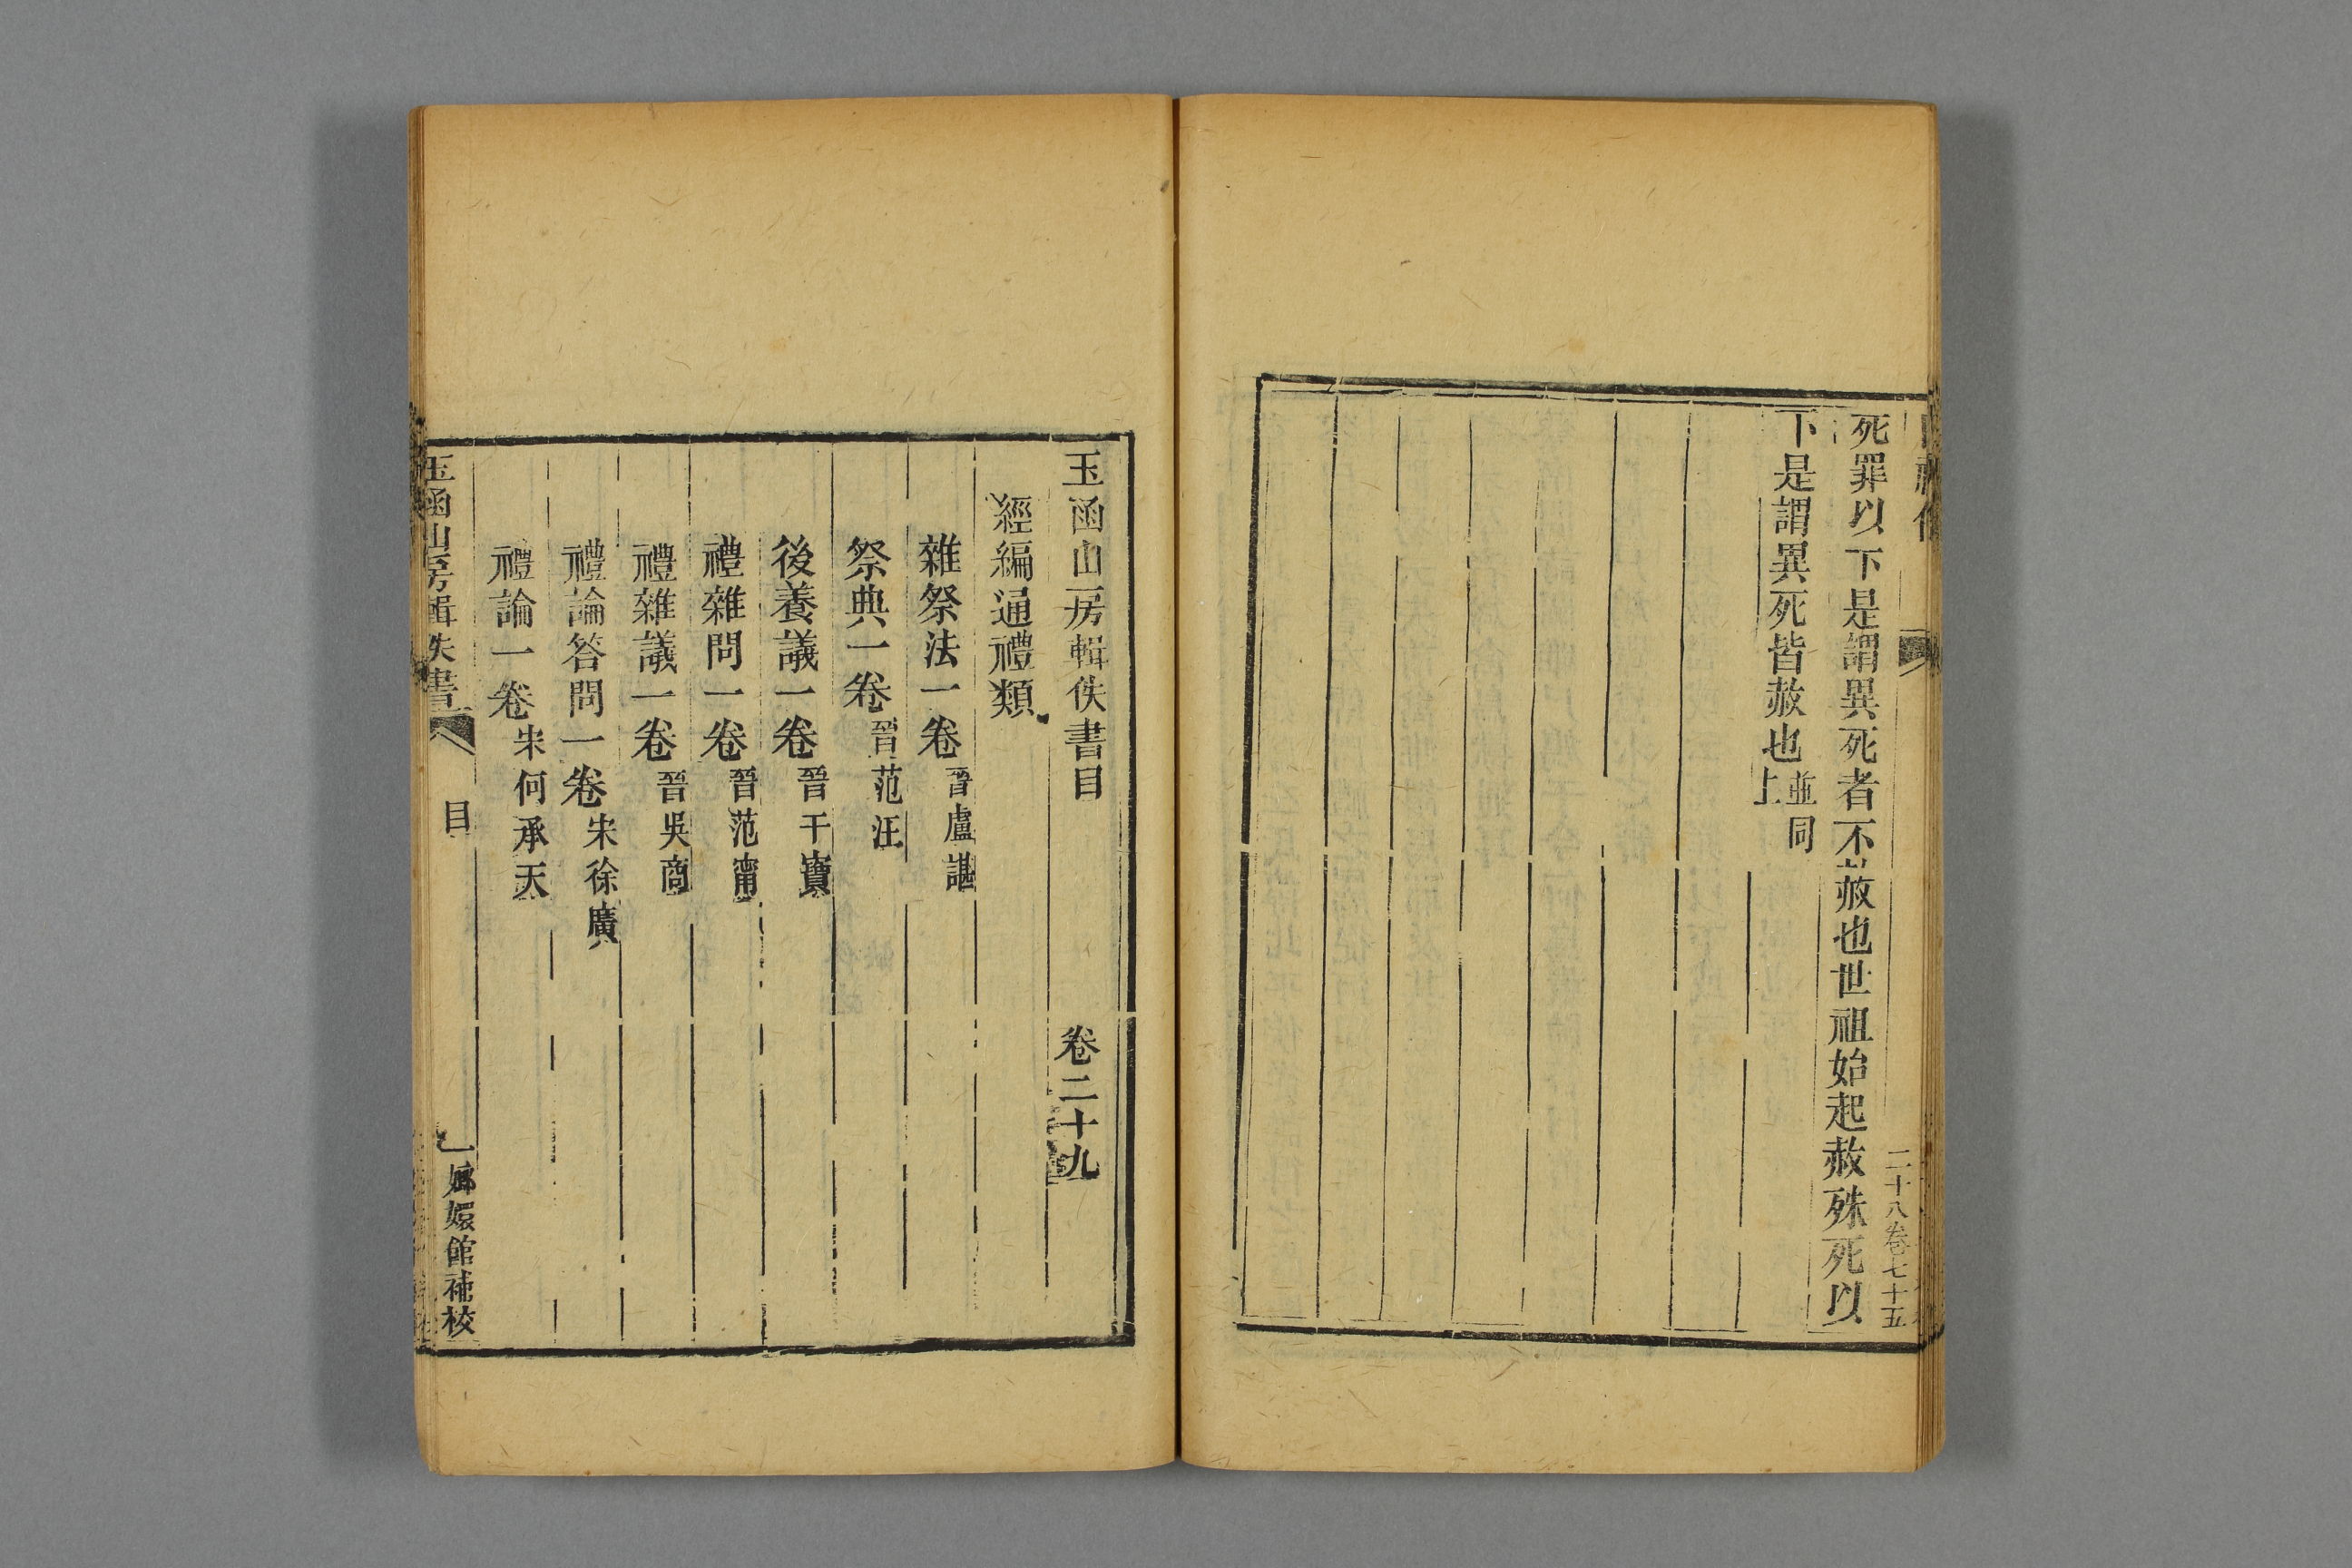 二十八卷七十五
死罪以下是謂異死者不赦也世祖始起赦殊死以
下是謂異死皆赦也並同上
玉函山房輯佚書目 卷二十九
經編通禮類
雜祭法一卷晉盧諶
祭典一卷晉范汪
後養議一卷晉干寶
禮雜問一卷晉范甯
禮雜議一卷晉吳商
禮論答問一卷宋徐廣
禮論一卷宋何承天
玉函山房輯佚書 目 一 嫏嬛館補校